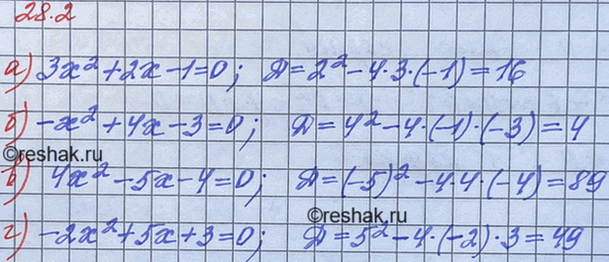 28.2
а) 3x² + 2x - 1 = 0; Д = 2² - 4·3·(-1) = 16
б) -x² + 4x - 3 = 0; Д = 4² - 4·(-1)·(-3) = 4
©reshak.ru
в) 4x² - 5x - 4 = 0; Д = (-5)² - 4·4·(-4) = 89
©reshak.ru
г) -2x² + 5x + 3 = 0; Д = 5² - 4·(-2)·3 = 49